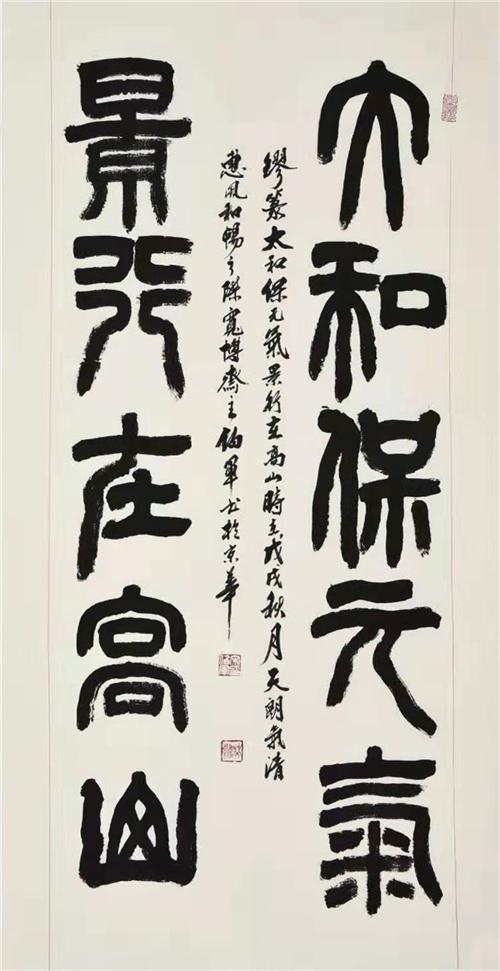 大和保元氣
繆篆太和保元氣景行在高山時在戊戌秋月天朗氣清
惠風和暢之際寬博齋主伯軍书於京華
景行在高山